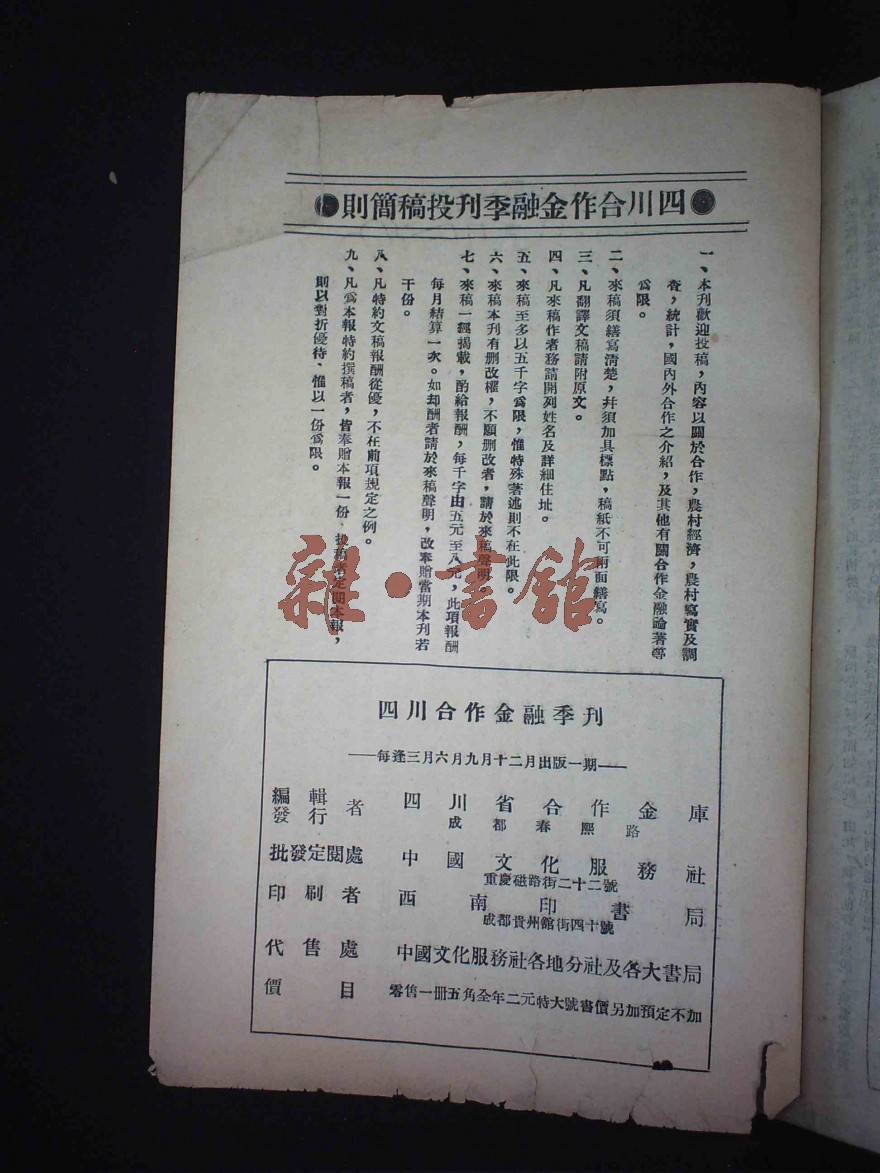 四川合作金融季刊投稿簡則
一、本刊歡迎投稿，內容以關於合作，農村經濟，農村寫實及調
查，統計，國內外合作之介紹，及其他有關合作金融論著等
爲限。
二、來稿須繕寫清楚，幷須加具標點，稿紙不可兩面繕寫。
三、凡翻譯文稿請附原文。
四、凡來稿作者務請開列姓名及詳細住址。
五、來稿至多以五千字爲限，惟特殊著述則不在此限。
六、來稿本刊有删改權，不願删改者，請於來稿聲明。
七、來稿一經揭載，酌給報酬，每千字由五元至八元，此項報酬
每月結算一次。如却酬者請於來稿聲明，改奉贈當期本刊若
干份。
八、凡特約文稿報酬從優，不在前項規定之例。
九、凡爲本報特約撰稿者，皆奉贈本報一份，投稿者定閱本報，
則以對折優待，惟以一份爲限。
雜·書館
四川合作金融季刊
——每逢三月六月九月十二月出版一期——
編輯發行者 四川省合作金庫
成都春熙路
批發定閱處 中國文化服務社
重慶磁路街二十二號
印刷者 西南印書局
成都貴州館街四十號
代售處 中國文化服務社各地分社及各大書局
價目 零售一冊五角全年二元特大號書價另加預定不加